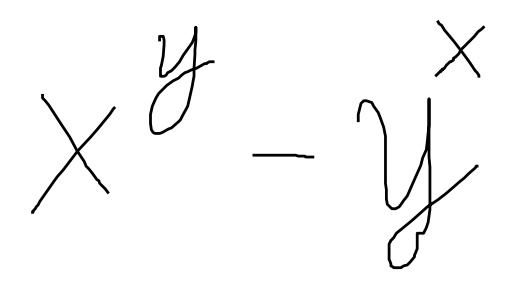 x^y - y^x